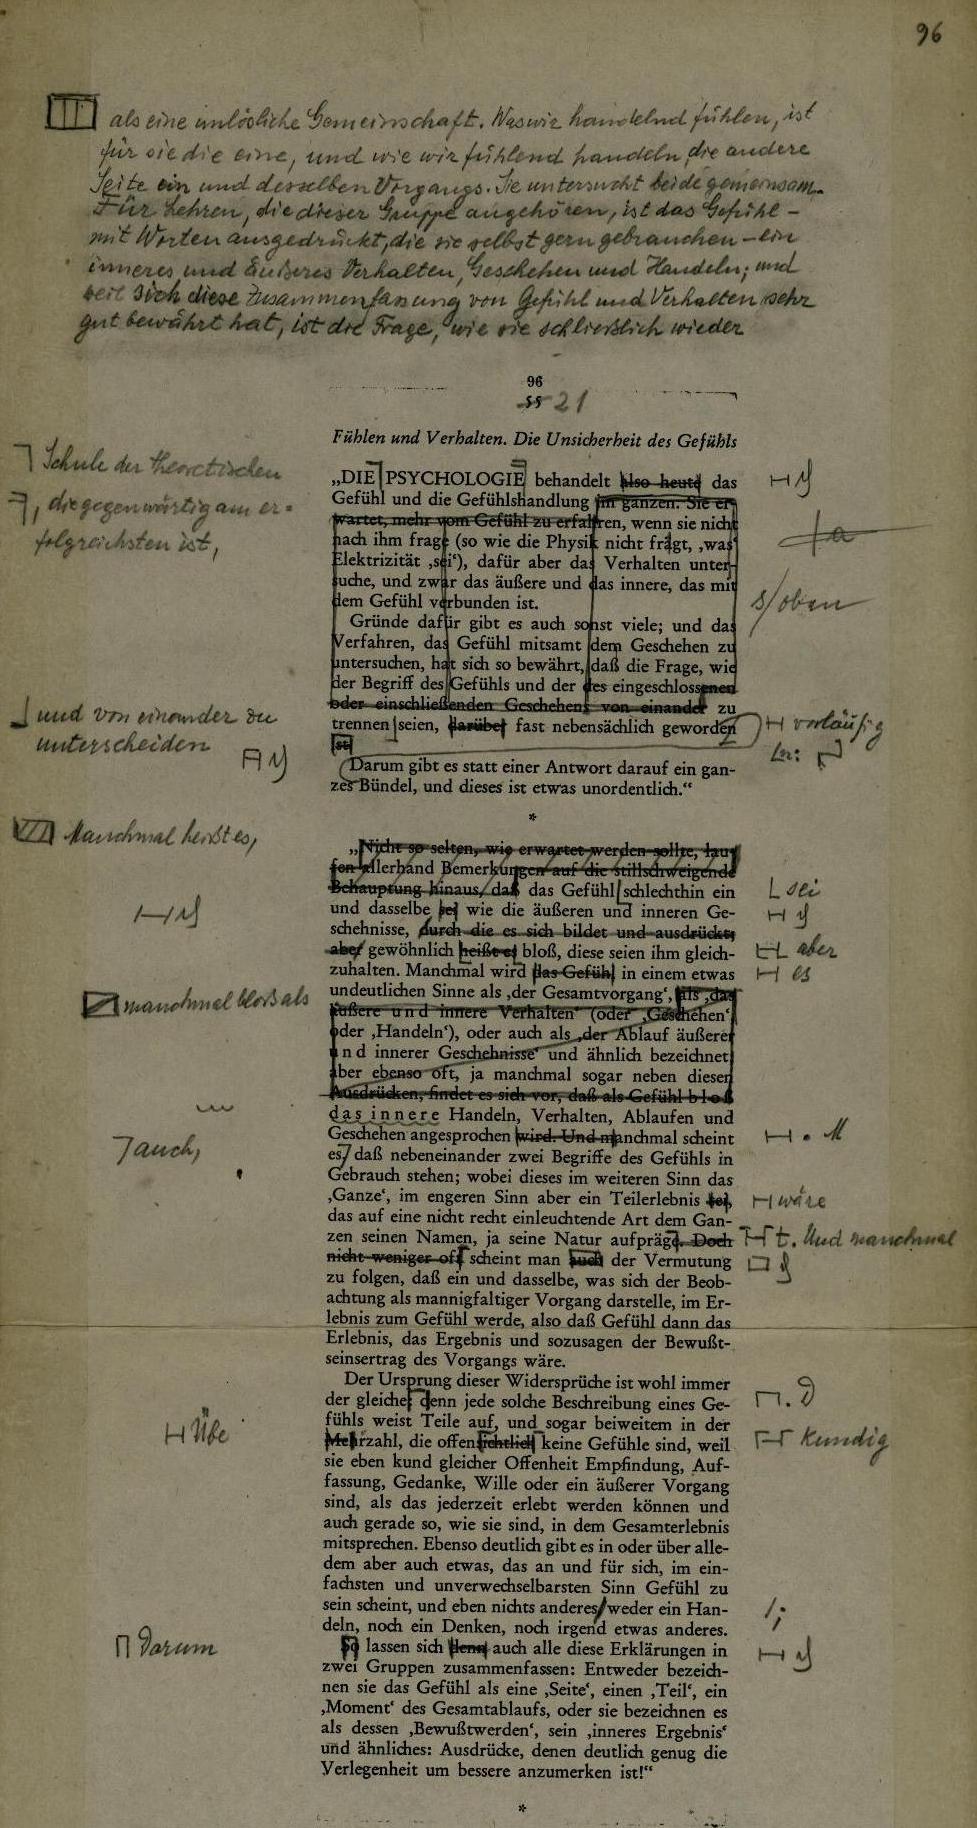 96
als eine unlösliche Gemeinschaft. Was wir handelnd fühlen, ist
für sie die eine, und wie wir fühlend handeln, die andere
Seite ein und desselben Vorgangs. Sie untersucht beide gemeinsam.
Für Lehren, die dieser Gruppe angehören, ist das Gefühl –
mit Worten ausgedrückt, die sie selbst gern gebrauchen – ein
inneres und äußeres Verhalten, Geschehen und Handeln; und
weil sich diese Zusammenfassung von Gefühl und Verhalten sehr
gut bewährt hat, ist die Frage, wie sie schließlich wieder
96
55 21
Fühlen und Verhalten. Die Unsicherheit des Gefühls
Schule der theoretischen
„DIE PSYCHOLOGIE behandelt also heute das
Gefühl und die Gefühlshandlung im ganzen. Sie er-
, die gegenwärtig am er-
wartet, mehr vom Gefühl zu erfahren, wenn sie nicht
folgreichsten ist,
nach ihm frage (so wie die Physik nicht frägt, ‚was
Elektrizität ‚sei‘), dafür aber das Verhalten unter-
suche, und zwar das äußere und das innere, das mit
dem Gefühl verbunden ist.
s/oben
Gründe dafür gibt es auch sonst viele; und das
Verfahren, das Gefühl mitsamt dem Geschehen zu
untersuchen, hat sich so bewährt, daß die Frage, wie
der Begriff des Gefühls und der des eingeschlossenen
oder einschließenden Geschehens von einander zu
und von einander zu
unterscheiden
trennen seien, darüber fast nebensächlich geworden
vorläufig
ist
Darum gibt es statt einer Antwort darauf ein gan-
zes Bündel, und dieses ist etwas unordentlich.“
*
Manchmal heißt es,
„Nicht so selten, wie erwartet werden sollte, lau-
fen allerhand Bemerkungen auf die stillschweigende
Behauptung hinaus, daß das Gefühl schlechthin ein
sei
und dasselbe sei wie die äußeren und inneren Ge-
schehnisse, durch die es sich bildet und ausdrückt;
aber gewöhnlich heißt es bloß, diese seien ihm gleich-
aber
zuhalten. Manchmal wird das Gefühl in einem etwas
es
undeutlichen Sinne als ‚der Gesamtvorgang‘, als ‚das
manchmal bloß als
äußere und innere Verhalten‘ (oder ‚Geschehen‘
oder ‚Handeln‘), oder auch als ‚der Ablauf äußerer
und innerer Geschehnisse‘ und ähnlich bezeichnet
aber ebenso oft, ja manchmal sogar neben diesen
Ausdrücken, findet es sich vor, daß als Gefühl bloß
das innere Handeln, Verhalten, Ablaufen und
Geschehen angesprochen wird. Und manchmal scheint
M
auch,
es, daß nebeneinander zwei Begriffe des Gefühls in
Gebrauch stehen; wobei dieses im weiteren Sinn das
‚Ganze‘, im engeren Sinn aber ein Teilerlebnis sei,
wäre
das auf eine nicht recht einleuchtende Art dem Gan-
zen seinen Namen, ja seine Natur aufprägt. Doch
t. Und manchmal
nicht weniger oft scheint man auch der Vermutung
zu folgen, daß ein und dasselbe, was sich der Beob-
achtung als mannigfaltiger Vorgang darstelle, im Er-
lebnis zum Gefühl werde, also daß Gefühl dann das
Erlebnis, das Ergebnis und sozusagen der Bewußt-
seinsertrag des Vorgangs wäre.
Der Ursprung dieser Widersprüche ist wohl immer
der gleiche denn jede solche Beschreibung eines Ge-
. D
fühls weist Teile auf, und sogar beiweitem in der
Übe
Mehrzahl, die offensichtlich keine Gefühle sind, weil
kundig
sie eben kund gleicher Offenheit Empfindung, Auf-
fassung, Gedanke, Wille oder ein äußerer Vorgang
sind, als das jederzeit erlebt werden können und
auch gerade so, wie sie sind, in dem Gesamterlebnis
mitsprechen. Ebenso deutlich gibt es in oder über alle-
dem aber auch etwas, das an und für sich, im ein-
fachsten und unverwechselbarsten Sinn Gefühl zu
sein scheint, und eben nichts anderes weder ein Han-
/;
deln, noch ein Denken, noch irgend etwas anderes.
Darum
So lassen sich denn auch alle diese Erklärungen in
zwei Gruppen zusammenfassen: Entweder bezeich-
nen sie das Gefühl als eine ‚Seite‘, einen ‚Teil‘, ein
‚Moment‘ des Gesamtablaufs, oder sie bezeichnen es
als dessen ‚Bewußtwerden‘, sein ‚inneres Ergebnis‘
und ähnliches: Ausdrücke, denen deutlich genug die
Verlegenheit um bessere anzumerken ist!“
*